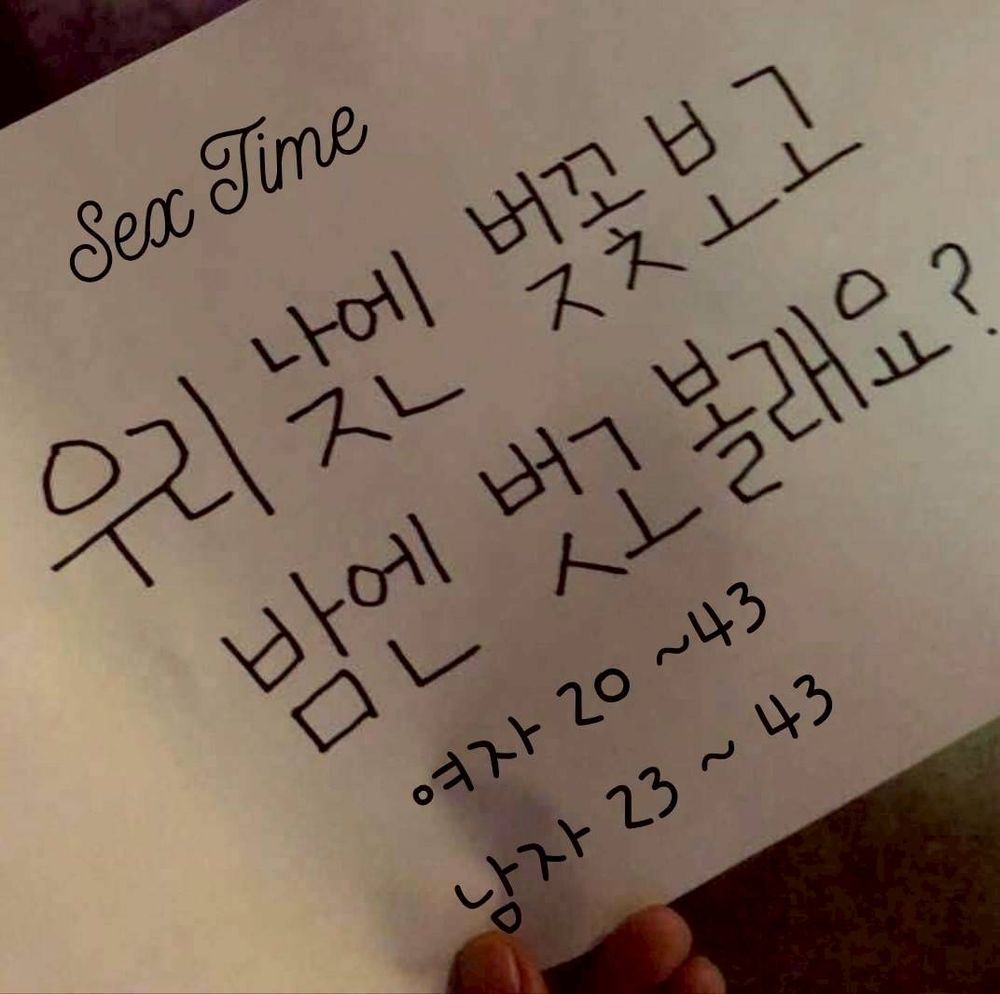 Sex Time
우리 낮엔 벚꽃 보고
밤엔 벗고 볼래요?
여자 20 ~43
남자 23 ~ 43